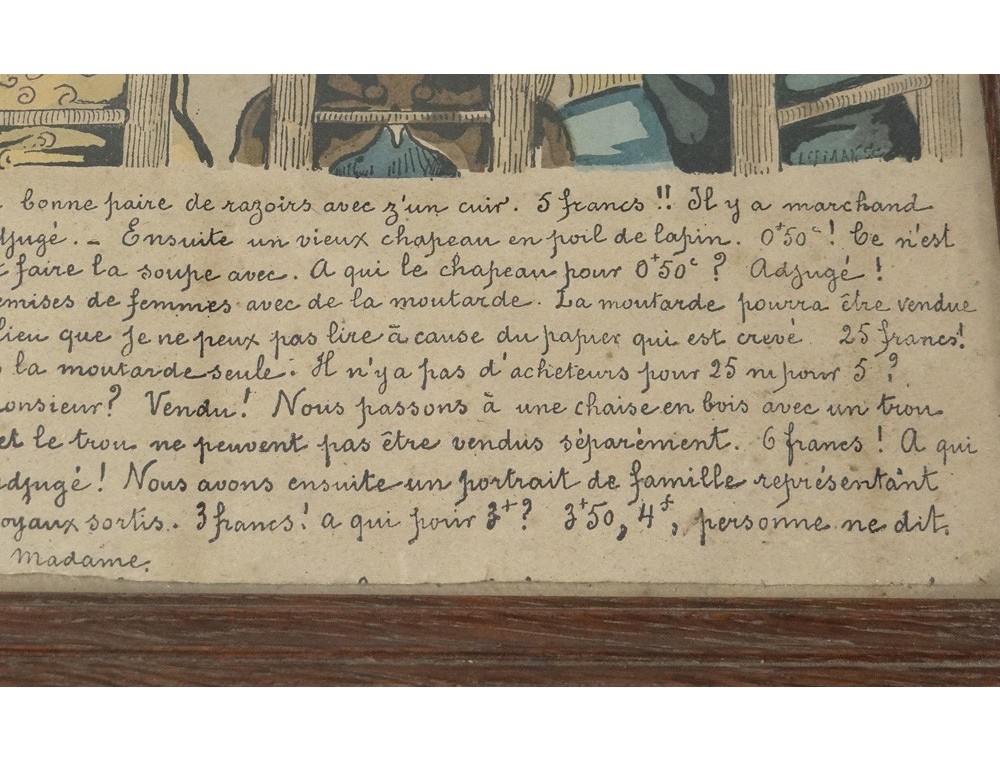 bonne paire de razoirs avec z'un cuir. 5 francs!! Il y a marchand
djugé. - Ensuite un vieux chapeau en poil de lapin. 0f50c! Ce n'est
faire la soupe avec. A qui le chapeau pour 0f50c? Adjugé!
emises de femmes avec de la moutarde. La moutarde pourra être vendue
lieu que je ne peux pas lire à cause du papier qui est crevé. 25 francs!
la moutarde seule. Il n'y a pas d'acheteurs pour 25 ni pour 5?
onsieur? Vendu! Nous passons à une chaise en bois avec un trou
et le trou ne peuvent pas être vendus séparément. 6 francs! A qui
adjugé! Nous avons ensuite un portrait de famille représentant
oyaux sortis. 3 francs! a qui pour 3f? 3f50, 4f, personne ne dit.
Madame.